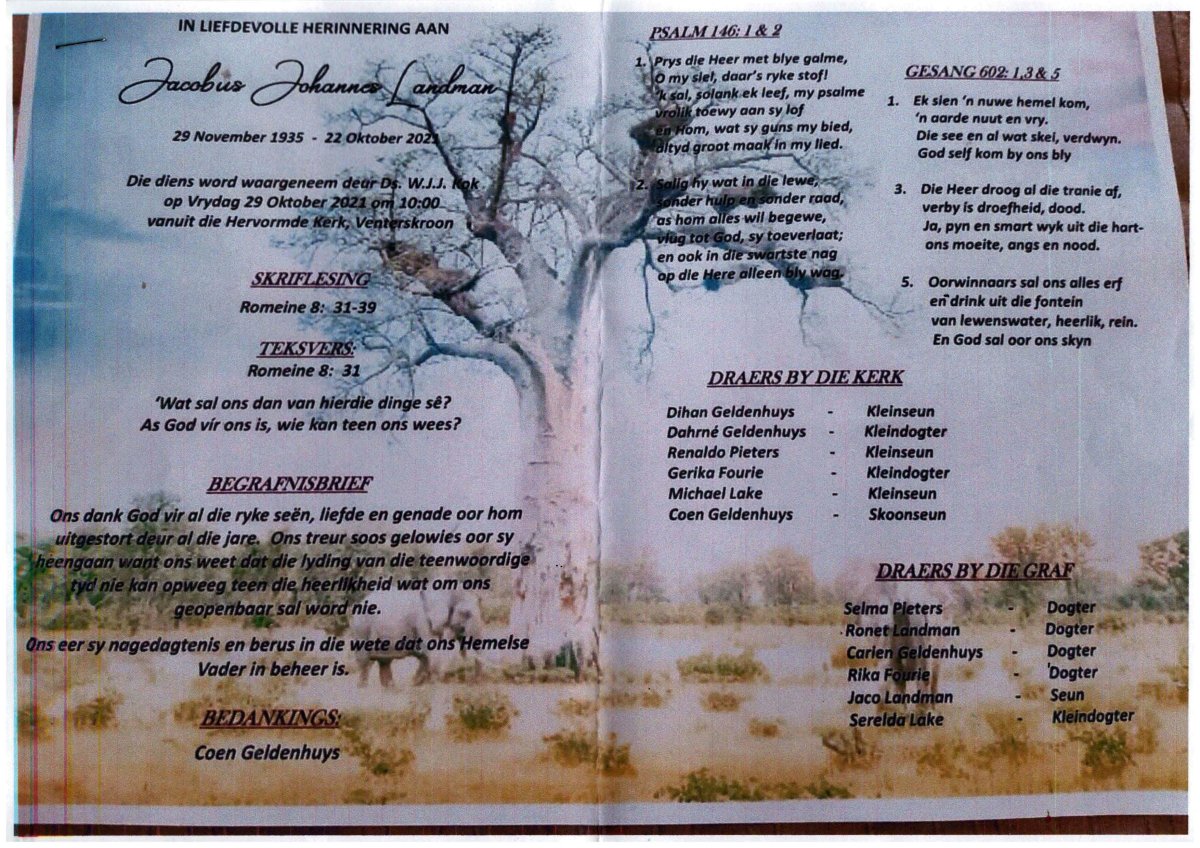 IN LIEFDEVOLLE HERINNERING AAN
Jacobus Johannes Landman
29 November 1935 - 22 Oktober 2021
Die diens word waargeneem deur Ds. W.J.J. Kok
op Vrydag 29 Oktober 2021 om 10:00
vanuit die Hervormde Kerk, Venterskroon
SKRIFLESING
Romeine 8: 31-39
TEKSVERS:
Romeine 8: 31
‘Wat sal ons dan van hierdie dinge sê?
As God vír ons is, wie kan teen ons wees?
BEGRAFNISBRIEF
Ons dank God vir al die ryke seën, liefde en genade oor hom
uitgestort deur al die jare. Ons treur soos gelowies oor sy
heengaan want ons weet dat die lyding van die teenwoordige
tyd nie kan opweeg teen die heerlikheid wat om ons
geopenbaar sal word nie.
Ons eer sy nagedagtenis en berus in die wete dat ons Hemelse
Vader in beheer is.
BEDANKINGS:
Coen Geldenhuys
PSALM 146: 1 & 2
1. Prys die Heer met blye galme,
O my siel, daar’s ryke stof!
‘k sal, solank ek leef, my psalme
vrolik toewy aan sy lof
en Hom, wat sy guns my bied,
altyd groot maak in my lied.
2. Salig hy wat in die lewe,
sonder hulp en sonder raad,
as hom alles wil begewe,
vlug tot God, sy toeverlaat;
en ook in die swartste nag
op die Here alleen bly wag.
GESANG 602: 1,3 & 5
1. Ek sien ‘n nuwe hemel kom,
‘n aarde nuut en vry.
Die see en al wat skei, verdwyn.
God self kom by ons bly
3. Die Heer droog al die tranie af,
verby is droefheid, dood.
Ja, pyn en smart wyk uit die hart-
ons moeite, angs en nood.
5. Oorwinnaars sal ons alles erf
en drink uit die fontein
van lewenswater, heerlik, rein.
En God sal oor ons skyn
DRAERS BY DIE KERK
Dihan Geldenhuys - Kleinseun
Dahrné Geldenhuys - Kleindogter
Renaldo Pieters - Kleinseun
Gerika Fourie - Kleindogter
Michael Lake - Kleinseun
Coen Geldenhuys - Skoonseun
DRAERS BY DIE GRAF
Selma Pieters - Dogter
Ronet Landman - Dogter
Carien Geldenhuys - Dogter
Rika Fourie - Dogter
Jaco Landman - Seun
Serelda Lake - Kleindogter